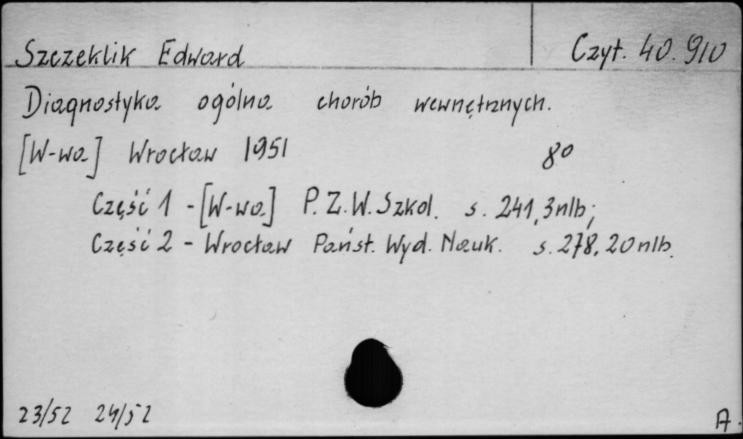 Szczeklik Edward Czyt. 40. 910
Diagnostyka ogólna chorób wewnętrznych.
[W-wa] Wrocław 1951 8⁰
Część 1 - [W-wa] P.Z.W.Szkol. s. 241, 3nlb;
Część 2 - Wrocław Państ. Wyd. Nauk. s. 278, 20nlb.
23/52 24/52 A.